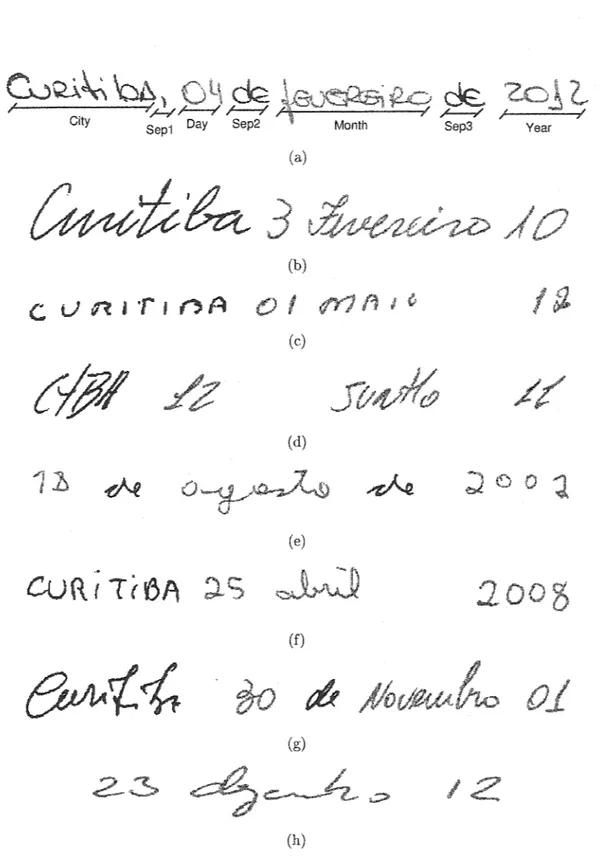 Curitiba, 04 de fevereiro de 2012
City Sep1 Day Sep2 Month Sep3 Year
(a)
Curitiba 3 Fevereiro 10
(b)
CURITIBA 01 MAIO 12
(c)
CTBA 12 JUNHO 11
(d)
18 de agosto de 2002
(e)
CURITIBA 25 abril 2008
(f)
Curitiba 30 de Novembro 01
(g)
23 dezembro 12
(h)